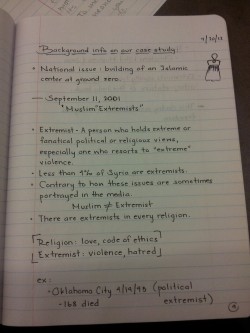 9/30/13
Background info on our case study:
• National issue: building of an Islamic
center at ground zero.
— September 11, 2001
"Muslim "Extremists"
• Extremist - A person who holds extreme or
fanatical political or religious views,
especially one who resorts to "extreme"
violence.
• Less than 4% of Syria are extremists.
• Contrary to how these issues are sometimes
portrayed in the media.
Muslim ≠ Extremist
• There are extremists in every religion.
Religion: love, code of ethics
Extremist: violence, hatred
ex:
- Oklahoma City 4/19/95 (political
- 168 died extremist)